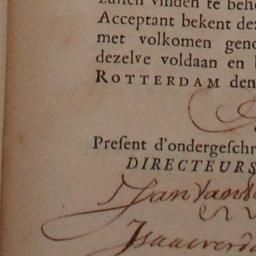 zullen vinden te beh
Acceptant bekent dez
met volkomen geno
dezelve voldaan en
ROTTERDAM den
Present d'ondergeschr
DIRECTEURS
Jan Van